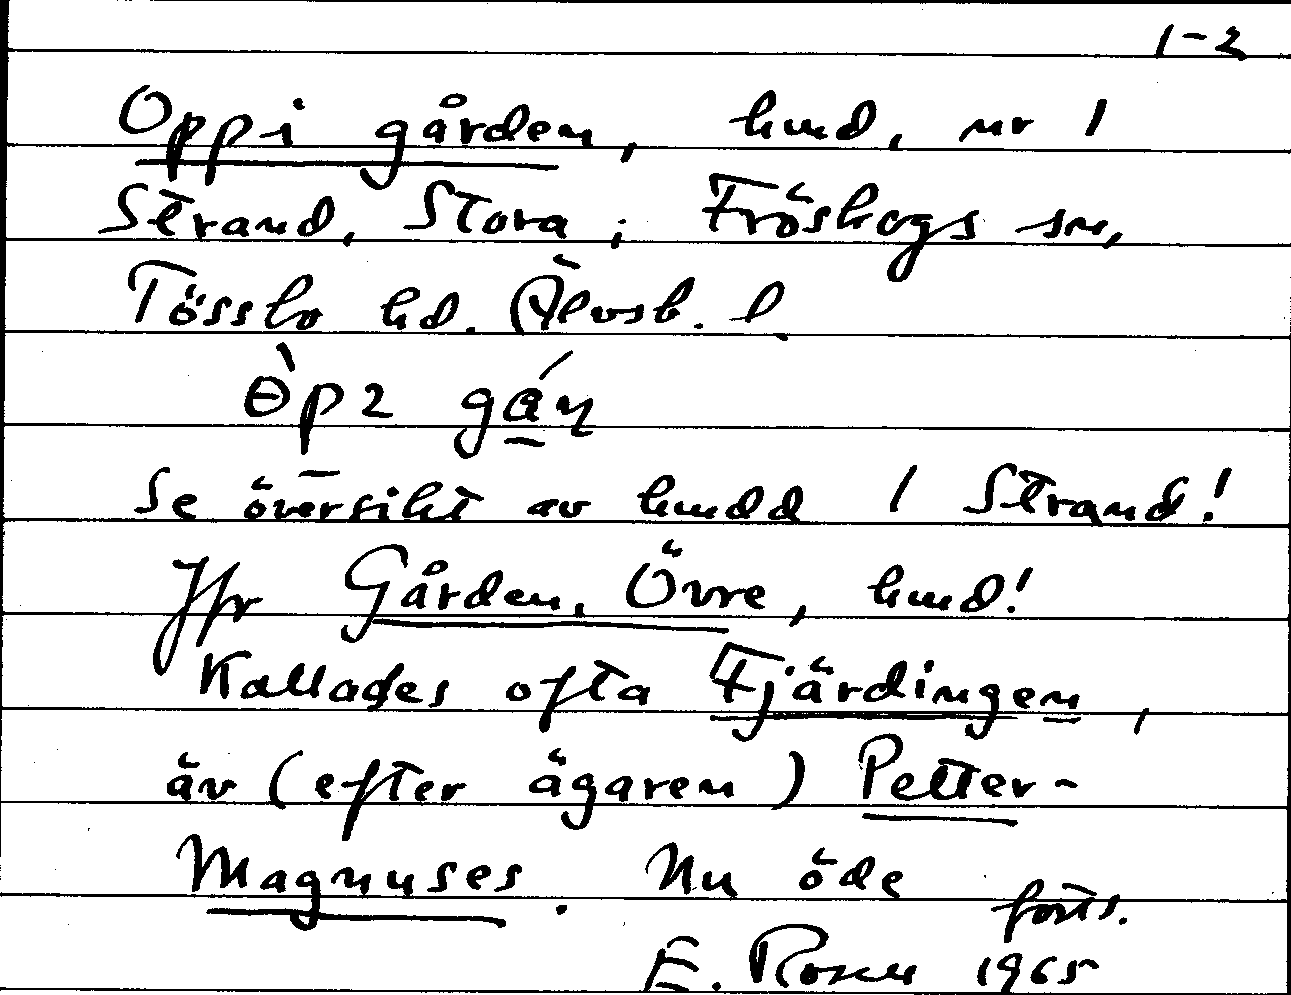 1-2
Oppi gården, hmd, nr 1
Strand, Stora; Fröskogs sn,
Tössbo hd. Älvsb. l.
se översikt av hmdd 1 Strand!
Jfr Gården, Övre, hmd!
Kallades ofta Fjärdingen,
äv (efter ägaren) Petter-
Magnuses. Nu öde
forts.
E. Rosen 1965